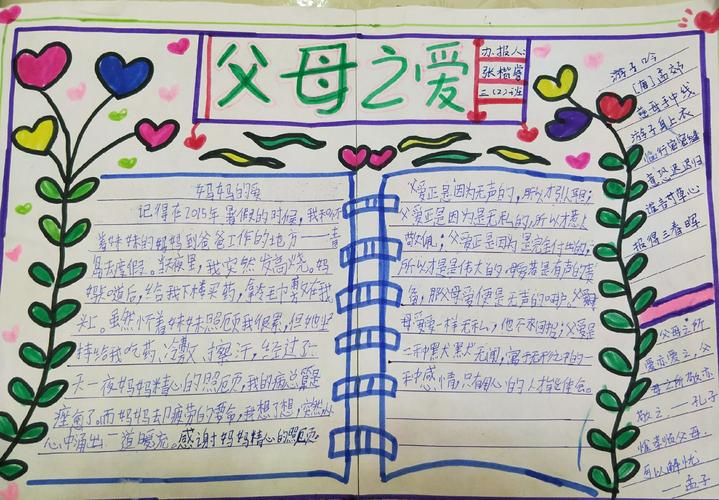 父母之爱
办报人:
张楷睿
三(2)班
妈妈的爱
记得在2015年暑假的时候,我和怀
着妹妹的妈妈到爸爸工作的地方——青
岛去度假。夜里,我突然发高烧。妈
妈知道后,给我下楼买药,拿冷毛巾敷在我
头上。虽然怀着妹妹照顾我很累,但她坚
持给我吃药、冷敷、擦汗,经过了
天一夜妈妈精心的照顾,我的病总算是
痊愈了。而妈妈去疲劳的要命,我想了想,突然从
心中涌出一道暖流。感谢妈妈精心的照顾。
父爱正是因为无声的,所以才引人
父爱正是因为是无私的,所以才惹人
敬佩;父爱正是因为是完全付出的,
所以才是是伟大的。母爱若是有声的
备,那父母爱便是无声的
母爱一样无私,他不求回报;父爱是
一种默默无闻,寓于无形之中的一
种感情,只有用心的人才能体会。
游子吟
[唐]孟郊
慈母手中线
游子身上衣
临行密密缝
意恐迟迟归
谁言寸草心
报得三春晖
父母之所
爱亦爱之,父
母之所敬亦
敬之——孔子
惟孝顺父母,
可以解忧
——孟子